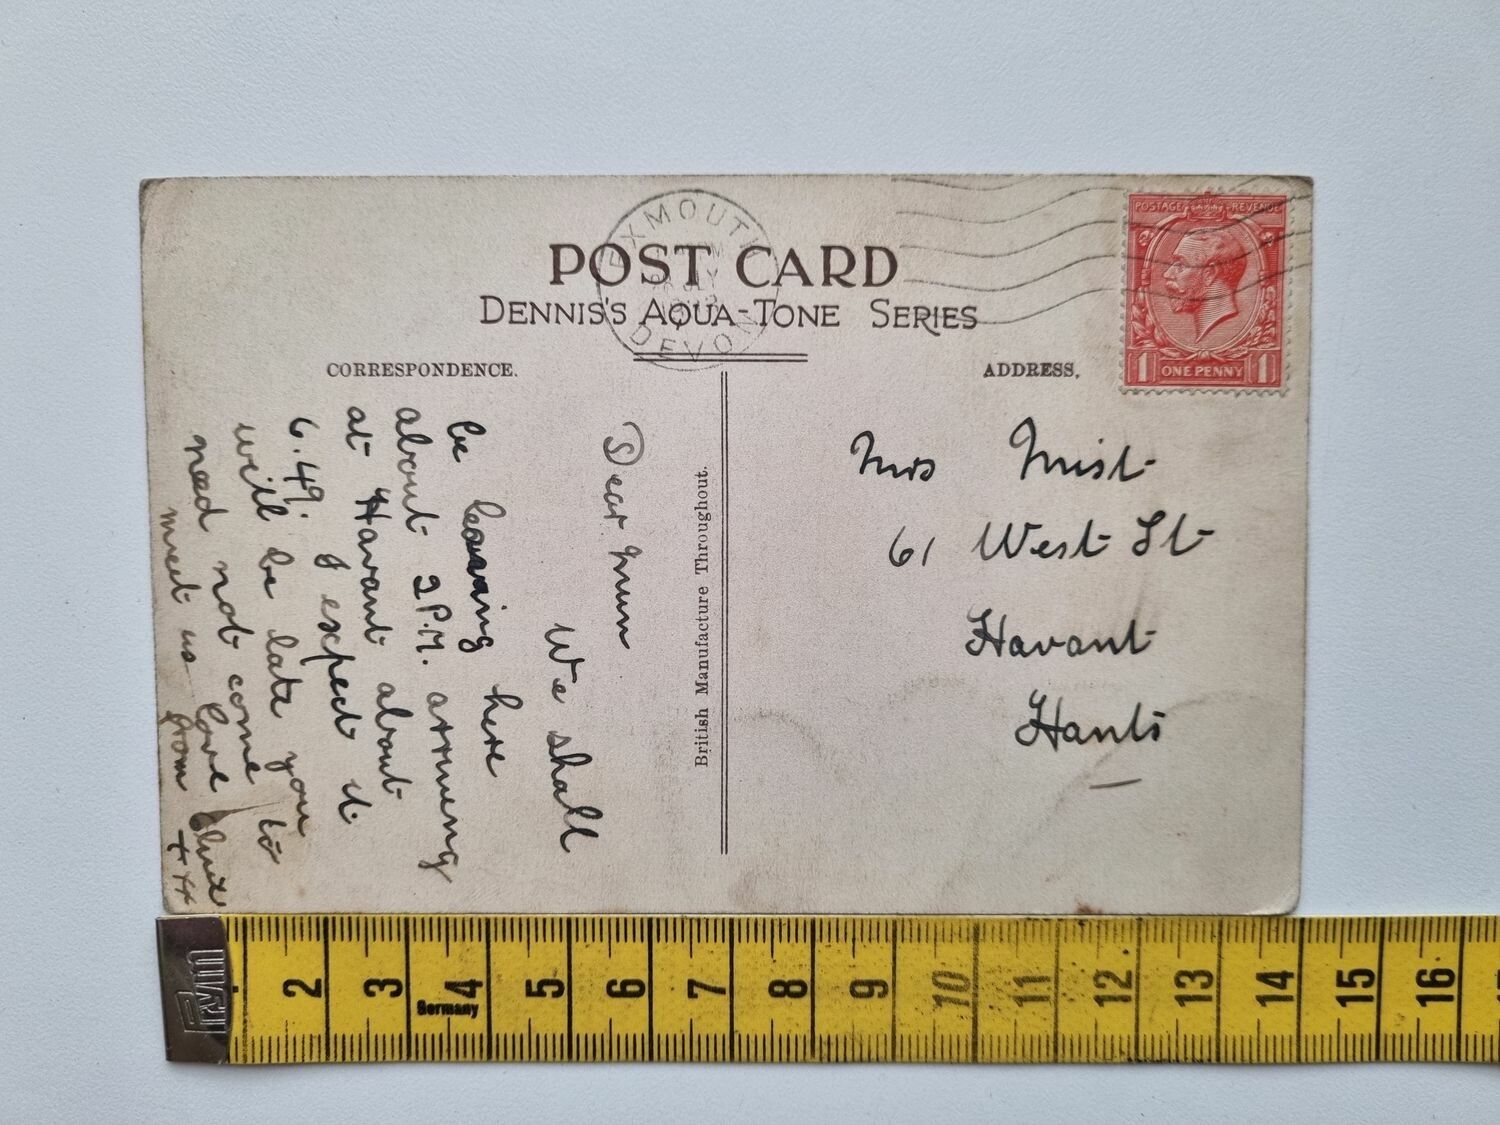 POST CARD
DENNIS'S AQUA-TONE SERIES
EXMOUTH
DEVON
POSTAGE REVENUE
1 ONE PENNY 1
CORRESPONDENCE.
ADDRESS.
British Manufacture Throughout.
Dear Mum
We shall
be leaving here
about 2 P.M. arriving
at Havant about
6.49. I expect it
will be late you
need not come to
meet us love
from
+++
Mrs Mist
61 West St
Havant
Hants
Prym
2 3 4 5 6 7 8 9 10 11 12 13 14 15 16
Germany